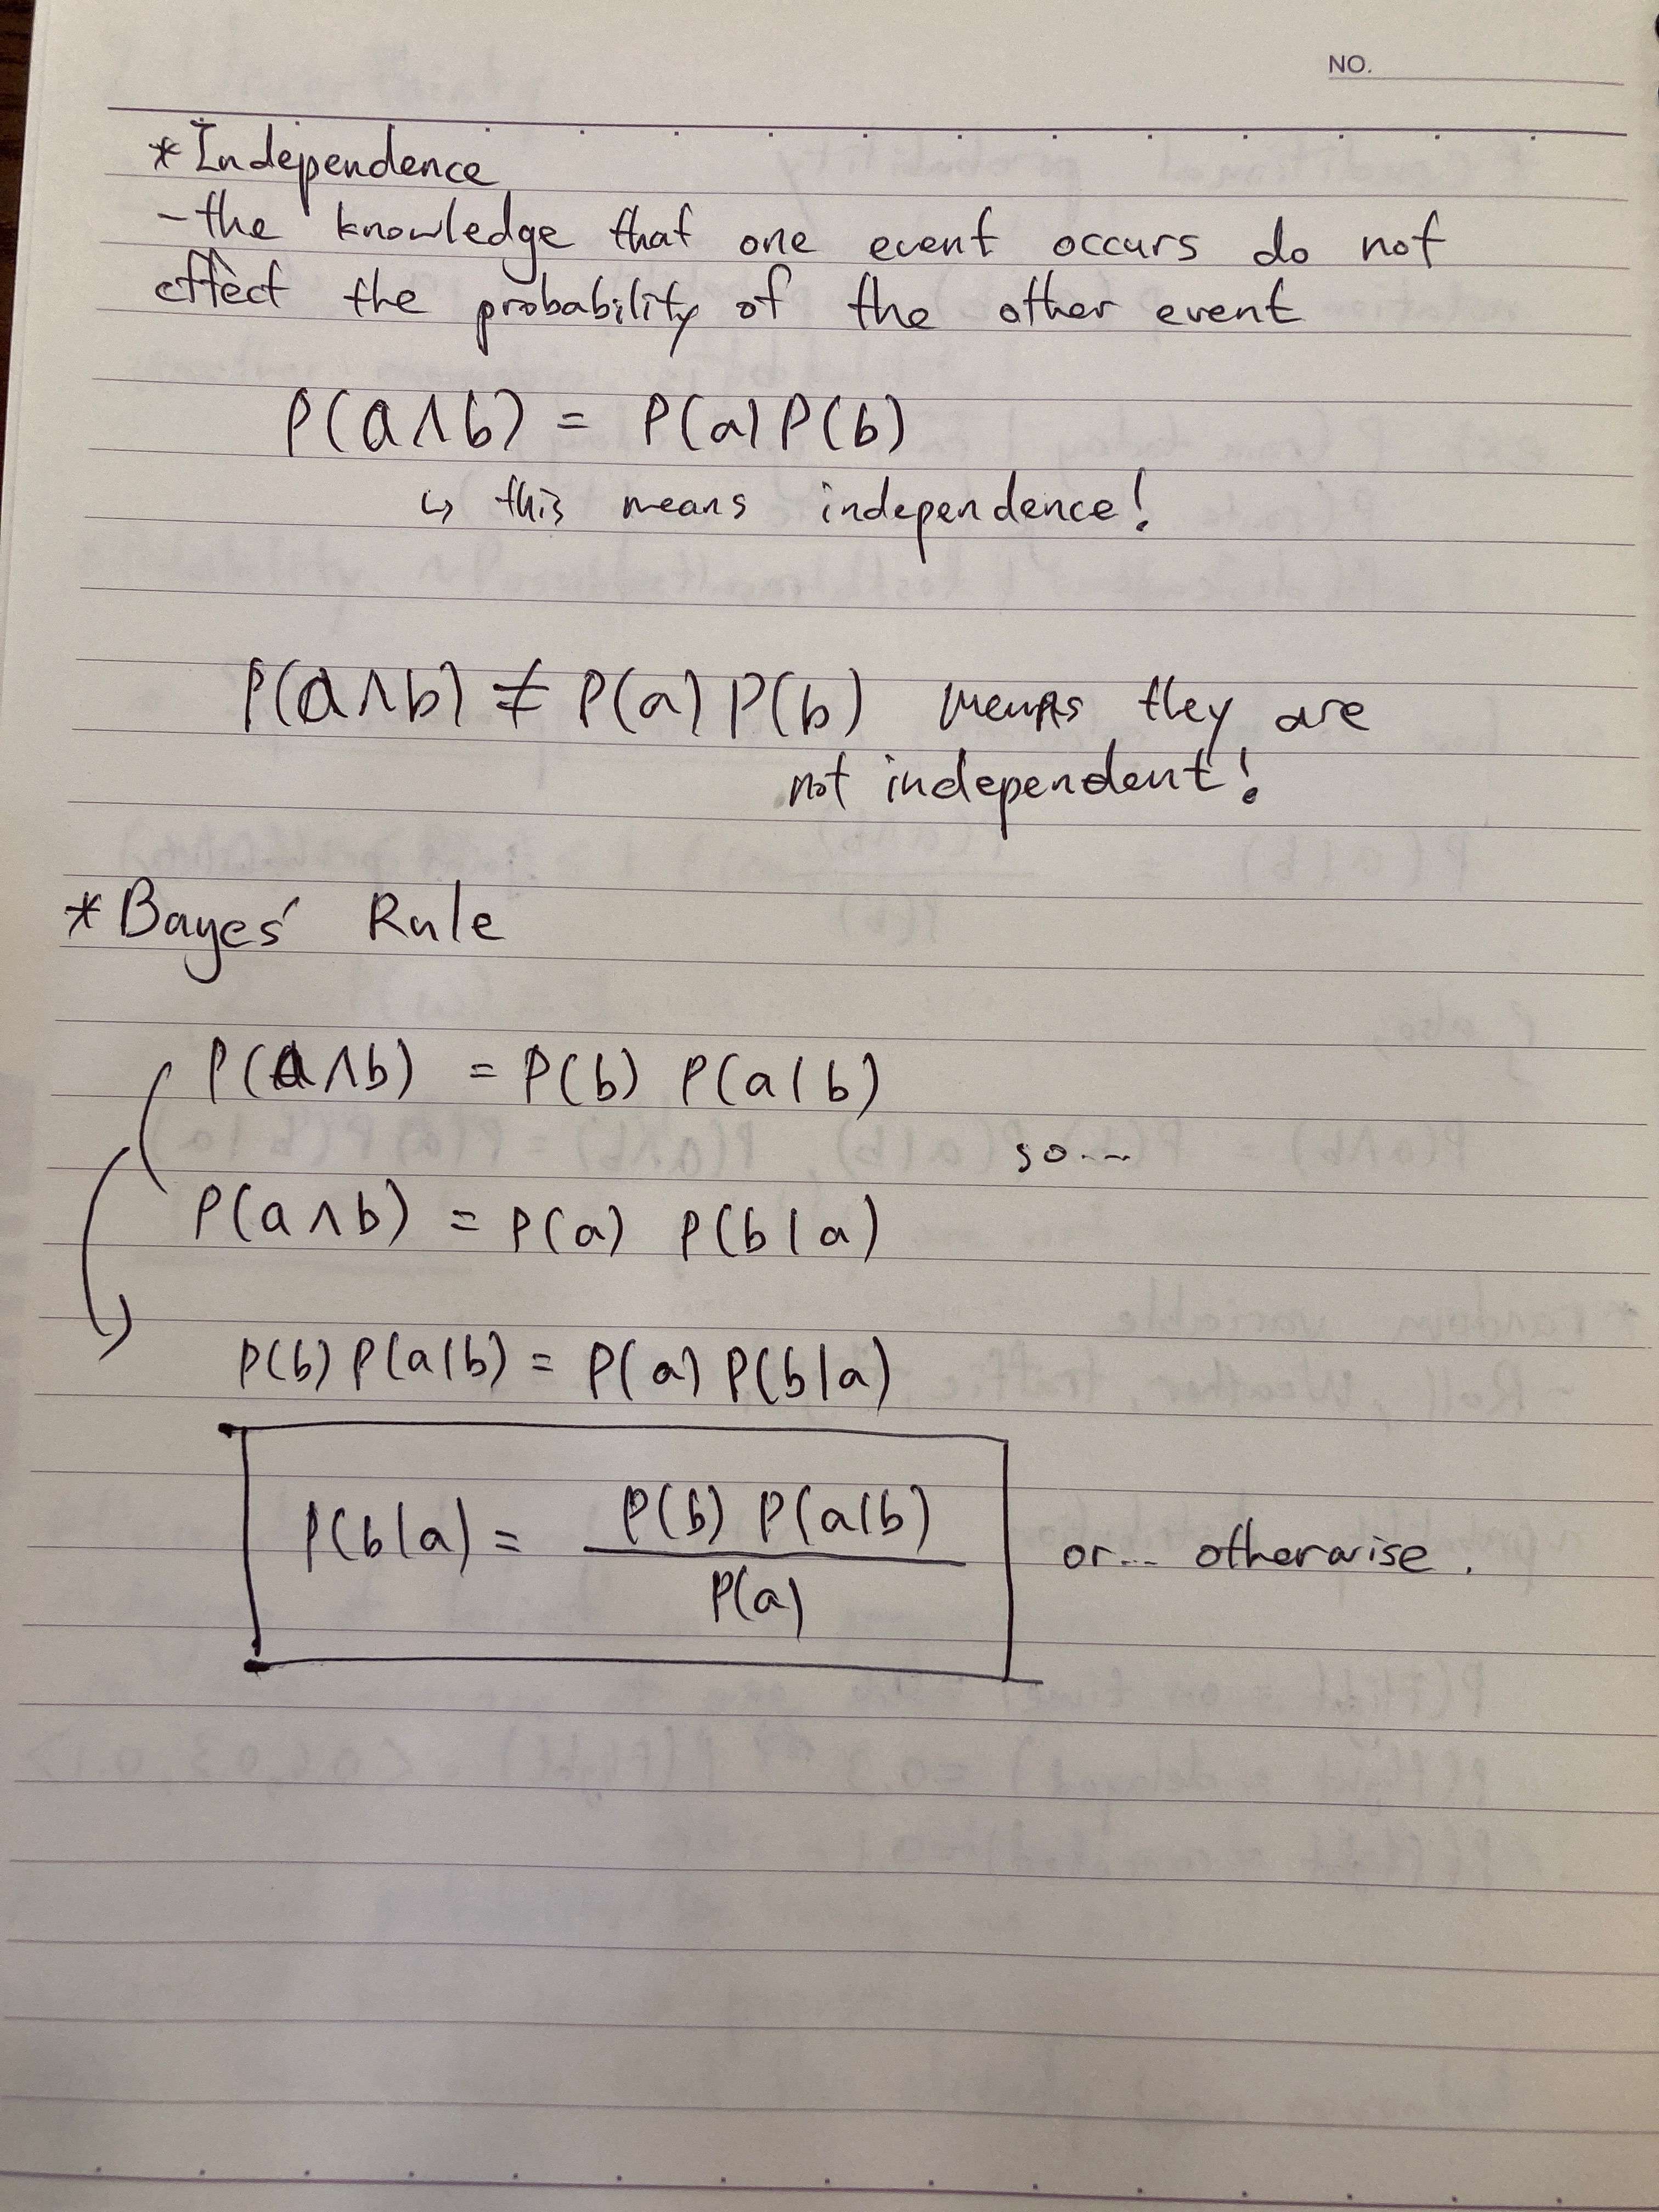 NO.
*Independence
-the knowledge that one event occurs do not
effect the probability of the other event
P(a∧b) = P(a)P(b)
↳ this means independence!
P(a∧b) ≠ P(a)P(b) means they are
not independent!
*Bayes' Rule
P(a∧b) = P(b) P(a|b)
so...
P(a∧b) = P(a) P(b|a)
P(b)P(a|b) = P(a)P(b|a)
P(b|a) = P(b) P(a|b)
P(a)
or... otherwise.